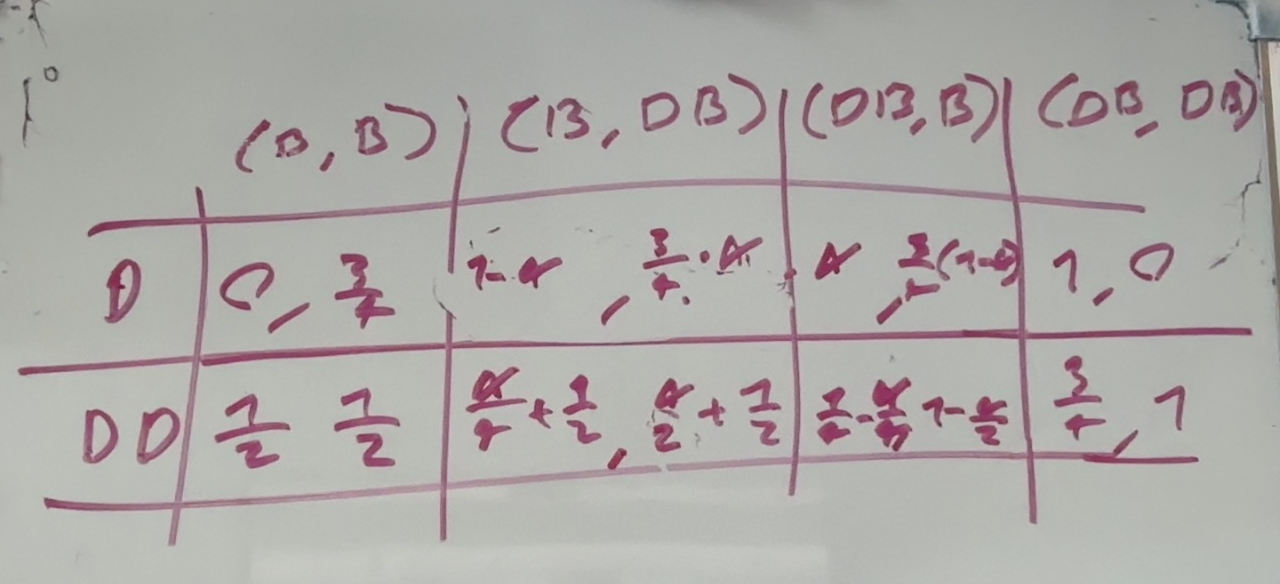 (B, B) (B, DB) (DB, B) (DB, DB)
D 0, 3/4 1-α, 3/4·α α, 3/4(1-α) 1, 0
DD 1/2 1/2 α/4+1/2, α/2+1/2 3/4-α/4 1-α/2 3/4, 1